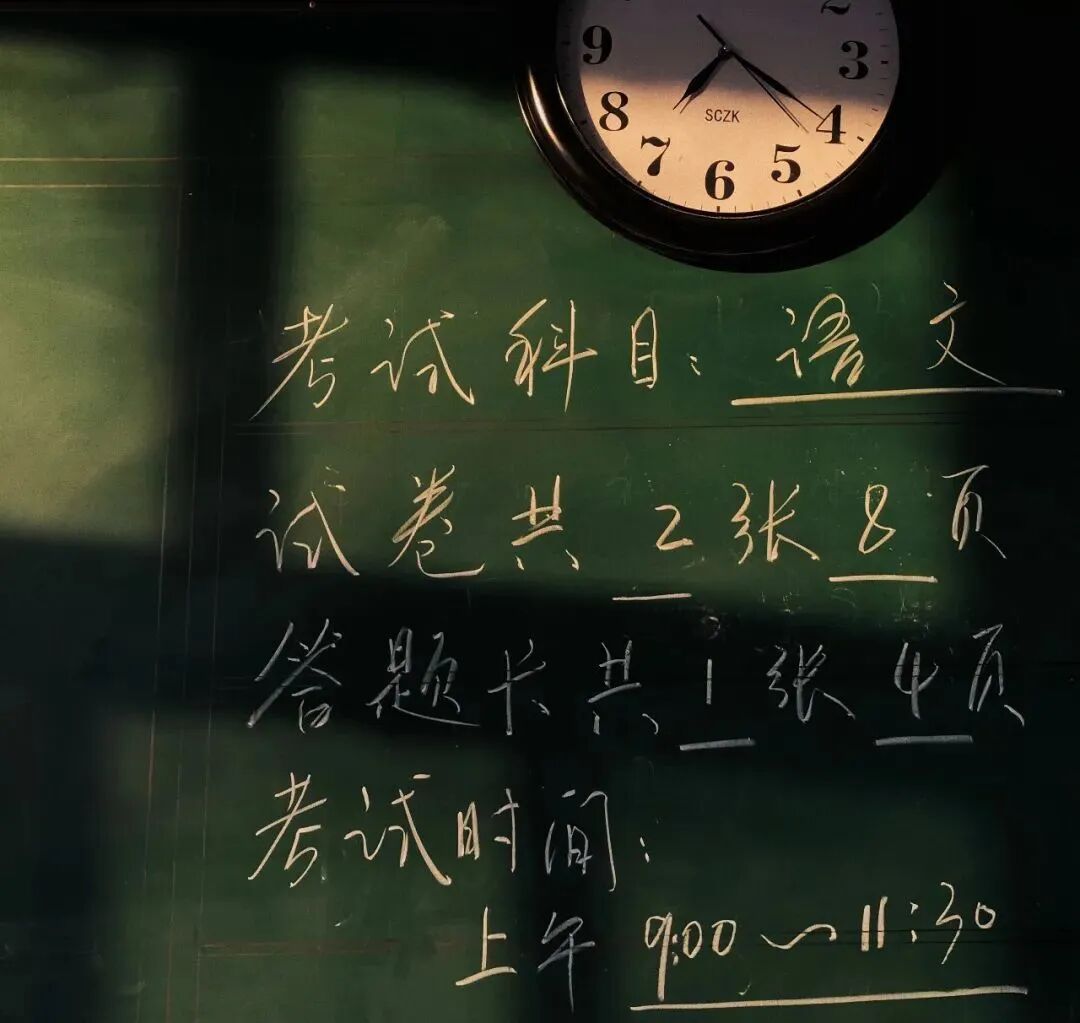 2
9 3
8 4
7 5
6
SCZK
考试科目：语文
试卷共 2 张 8 页
答题卡共 1 张 4 页
考试时间：
上午 9:00～11:30